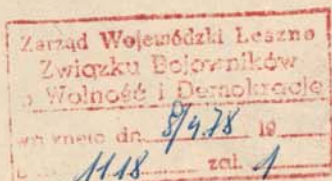 Zarząd Wojewódzki Leszno
Związku Bojowników
o Wolność i Demokrację
wpłynęło dn. 8/4.78 19
1118 zał. 1